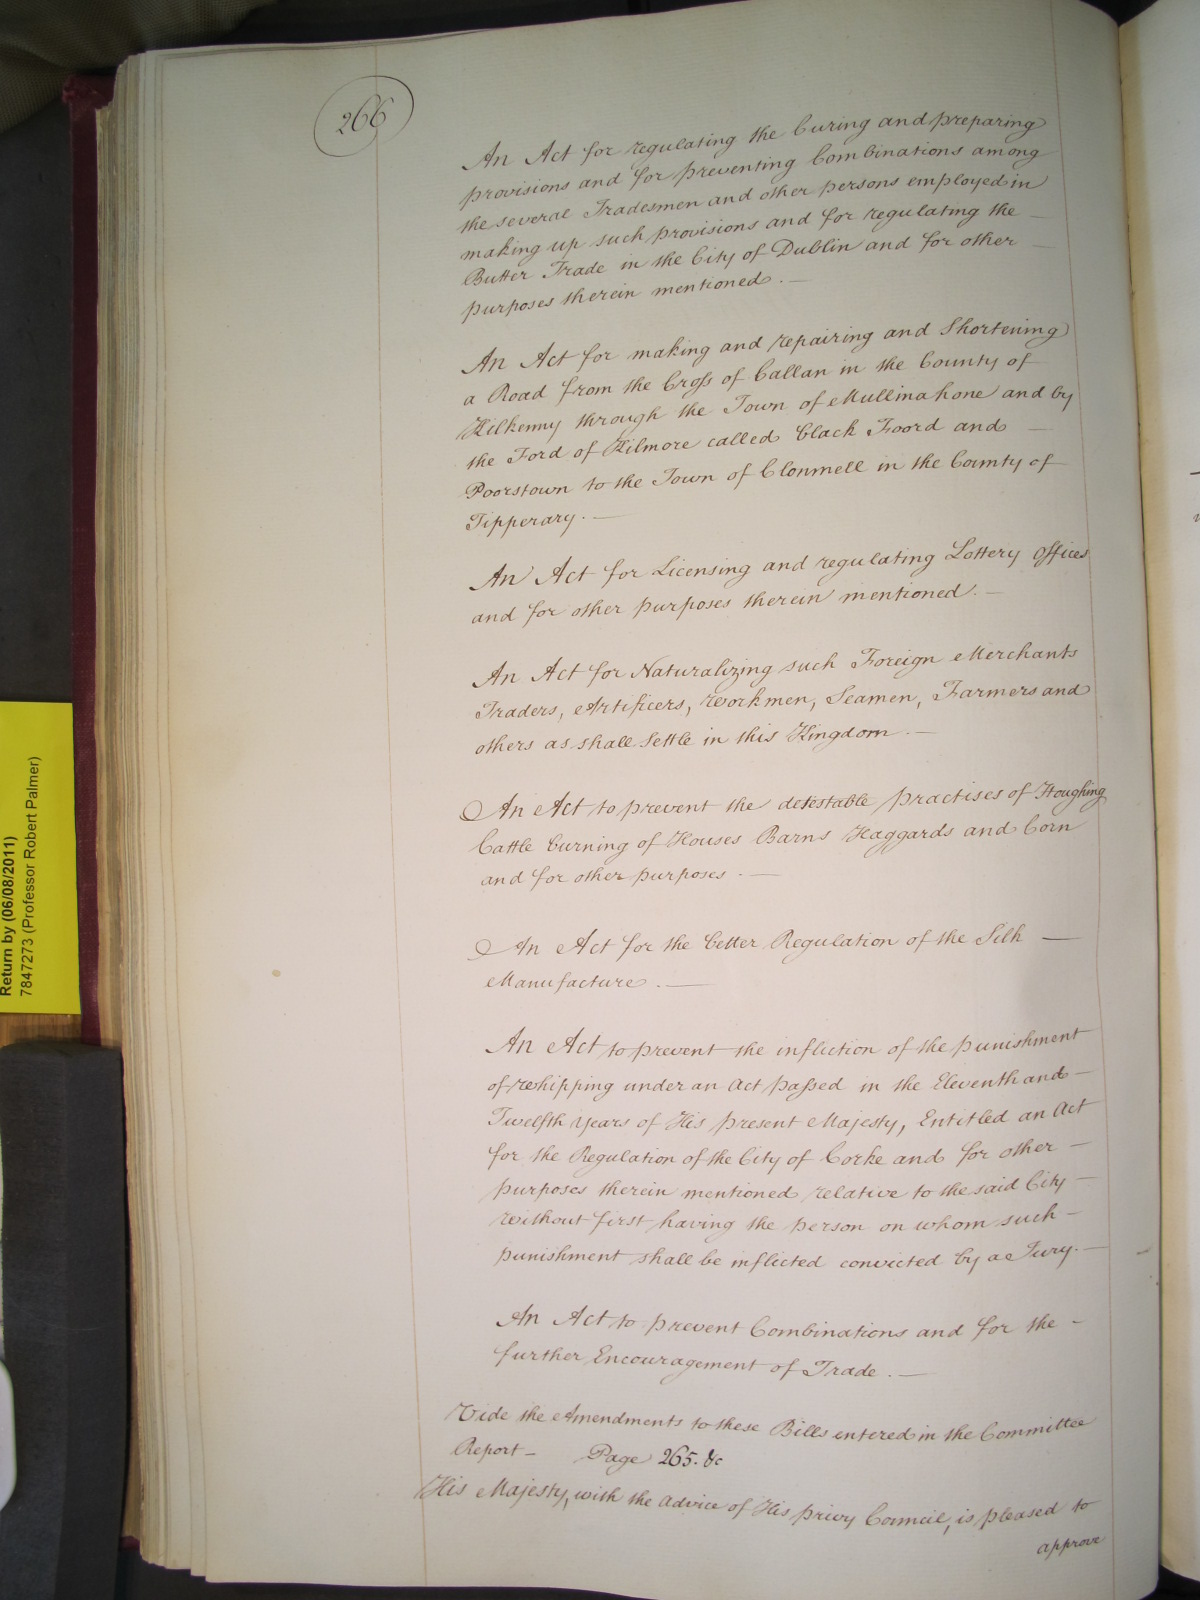 266
An Act for regulating the Curing and preparing
provisions and for preventing Combinations among
the several Tradesmen and other persons employed in
making up such provisions and for regulating the
Butter Trade in the City of Dublin and for other
purposes therein mentioned.
An Act for making and repairing and Shortening
a Road from the Cross of Callan in the County of
Kilkenny through the Town of Mullinahone and by
the Ford of Kilmore called Clack Foord and
Poorstown to the Town of Clonmell in the County of
Tipperary.
An Act for Licensing and regulating Lottery Offices
and for other purposes therein mentioned.
An Act for Naturalizing such Foreign Merchants
Traders, Artificers, Workmen, Seamen, Farmers and
others as shall Settle in this Kingdom.
An Act to prevent the detestable practises of Houghing
Cattle burning of Houses Barns Haggards and Corn
and for other purposes.
An Act for the better Regulation of the Silk
Manufacture.
An Act to prevent the infliction of the punishment
of whipping under an Act passed in the Eleventh and
Twelfth Years of His present Majesty, Entitled an Act
for the Regulation of the City of Corke and for other
purposes therein mentioned relative to the said City
without first having the person on whom such
punishment shall be inflicted convicted by a Jury.
An Act to prevent Combinations and for the
further Encouragement of Trade.
Vide the Amendments to these Bills entered in the Committee
Report - Page 265. &c
His Majesty, with the advice of His privy Council, is pleased to
approve
Return by (06/08/2011)
7847273 (Professor Robert Palmer)